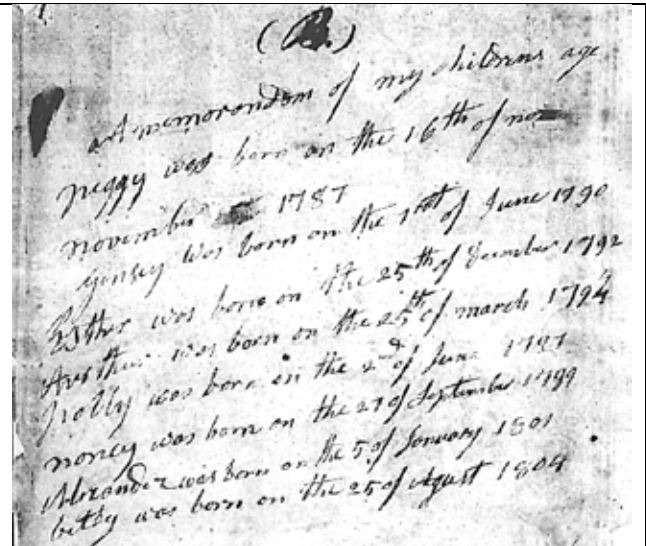 (B.)
a memorandom of my childrens age
peggy was born on the 16th of no
november 1787
was born on the 1st of June 1790
Esther was born on the 25th of December 1792
was born on the 25th of march 1794
polly was born on the 2nd of June 1797
noncy was born on the 27 of September 1799
Alexander was born on the 5 of Jonuory 1801
betty was born on the 25 of Agust 1804